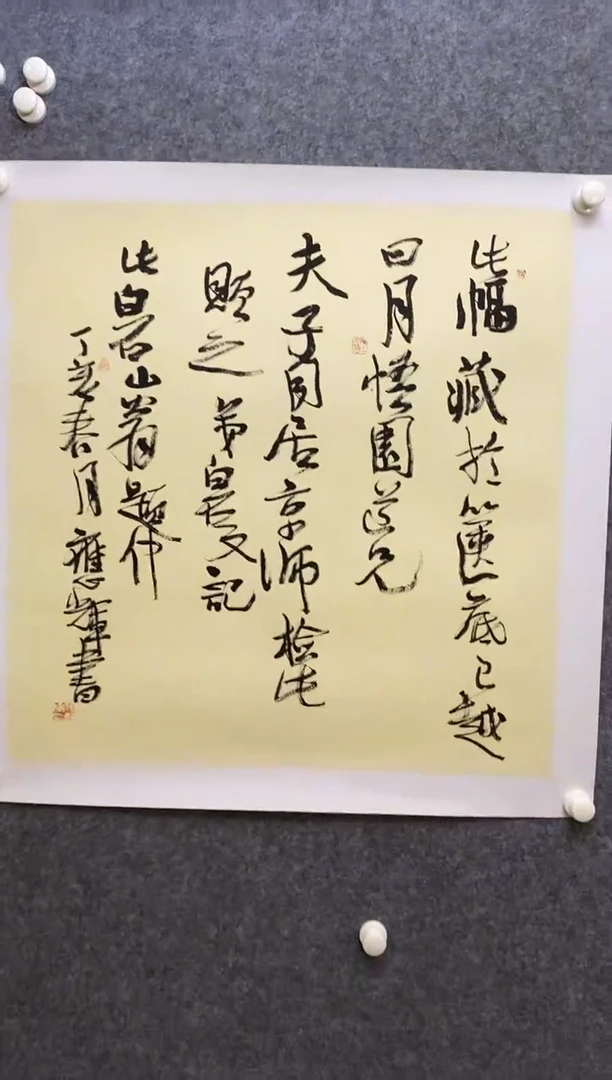 此幅藏於篋底已越
四月悟園道兄
夫子同居京師檢此
贈之弟白石又記
此白石山翁題作
丁亥春月應輝書